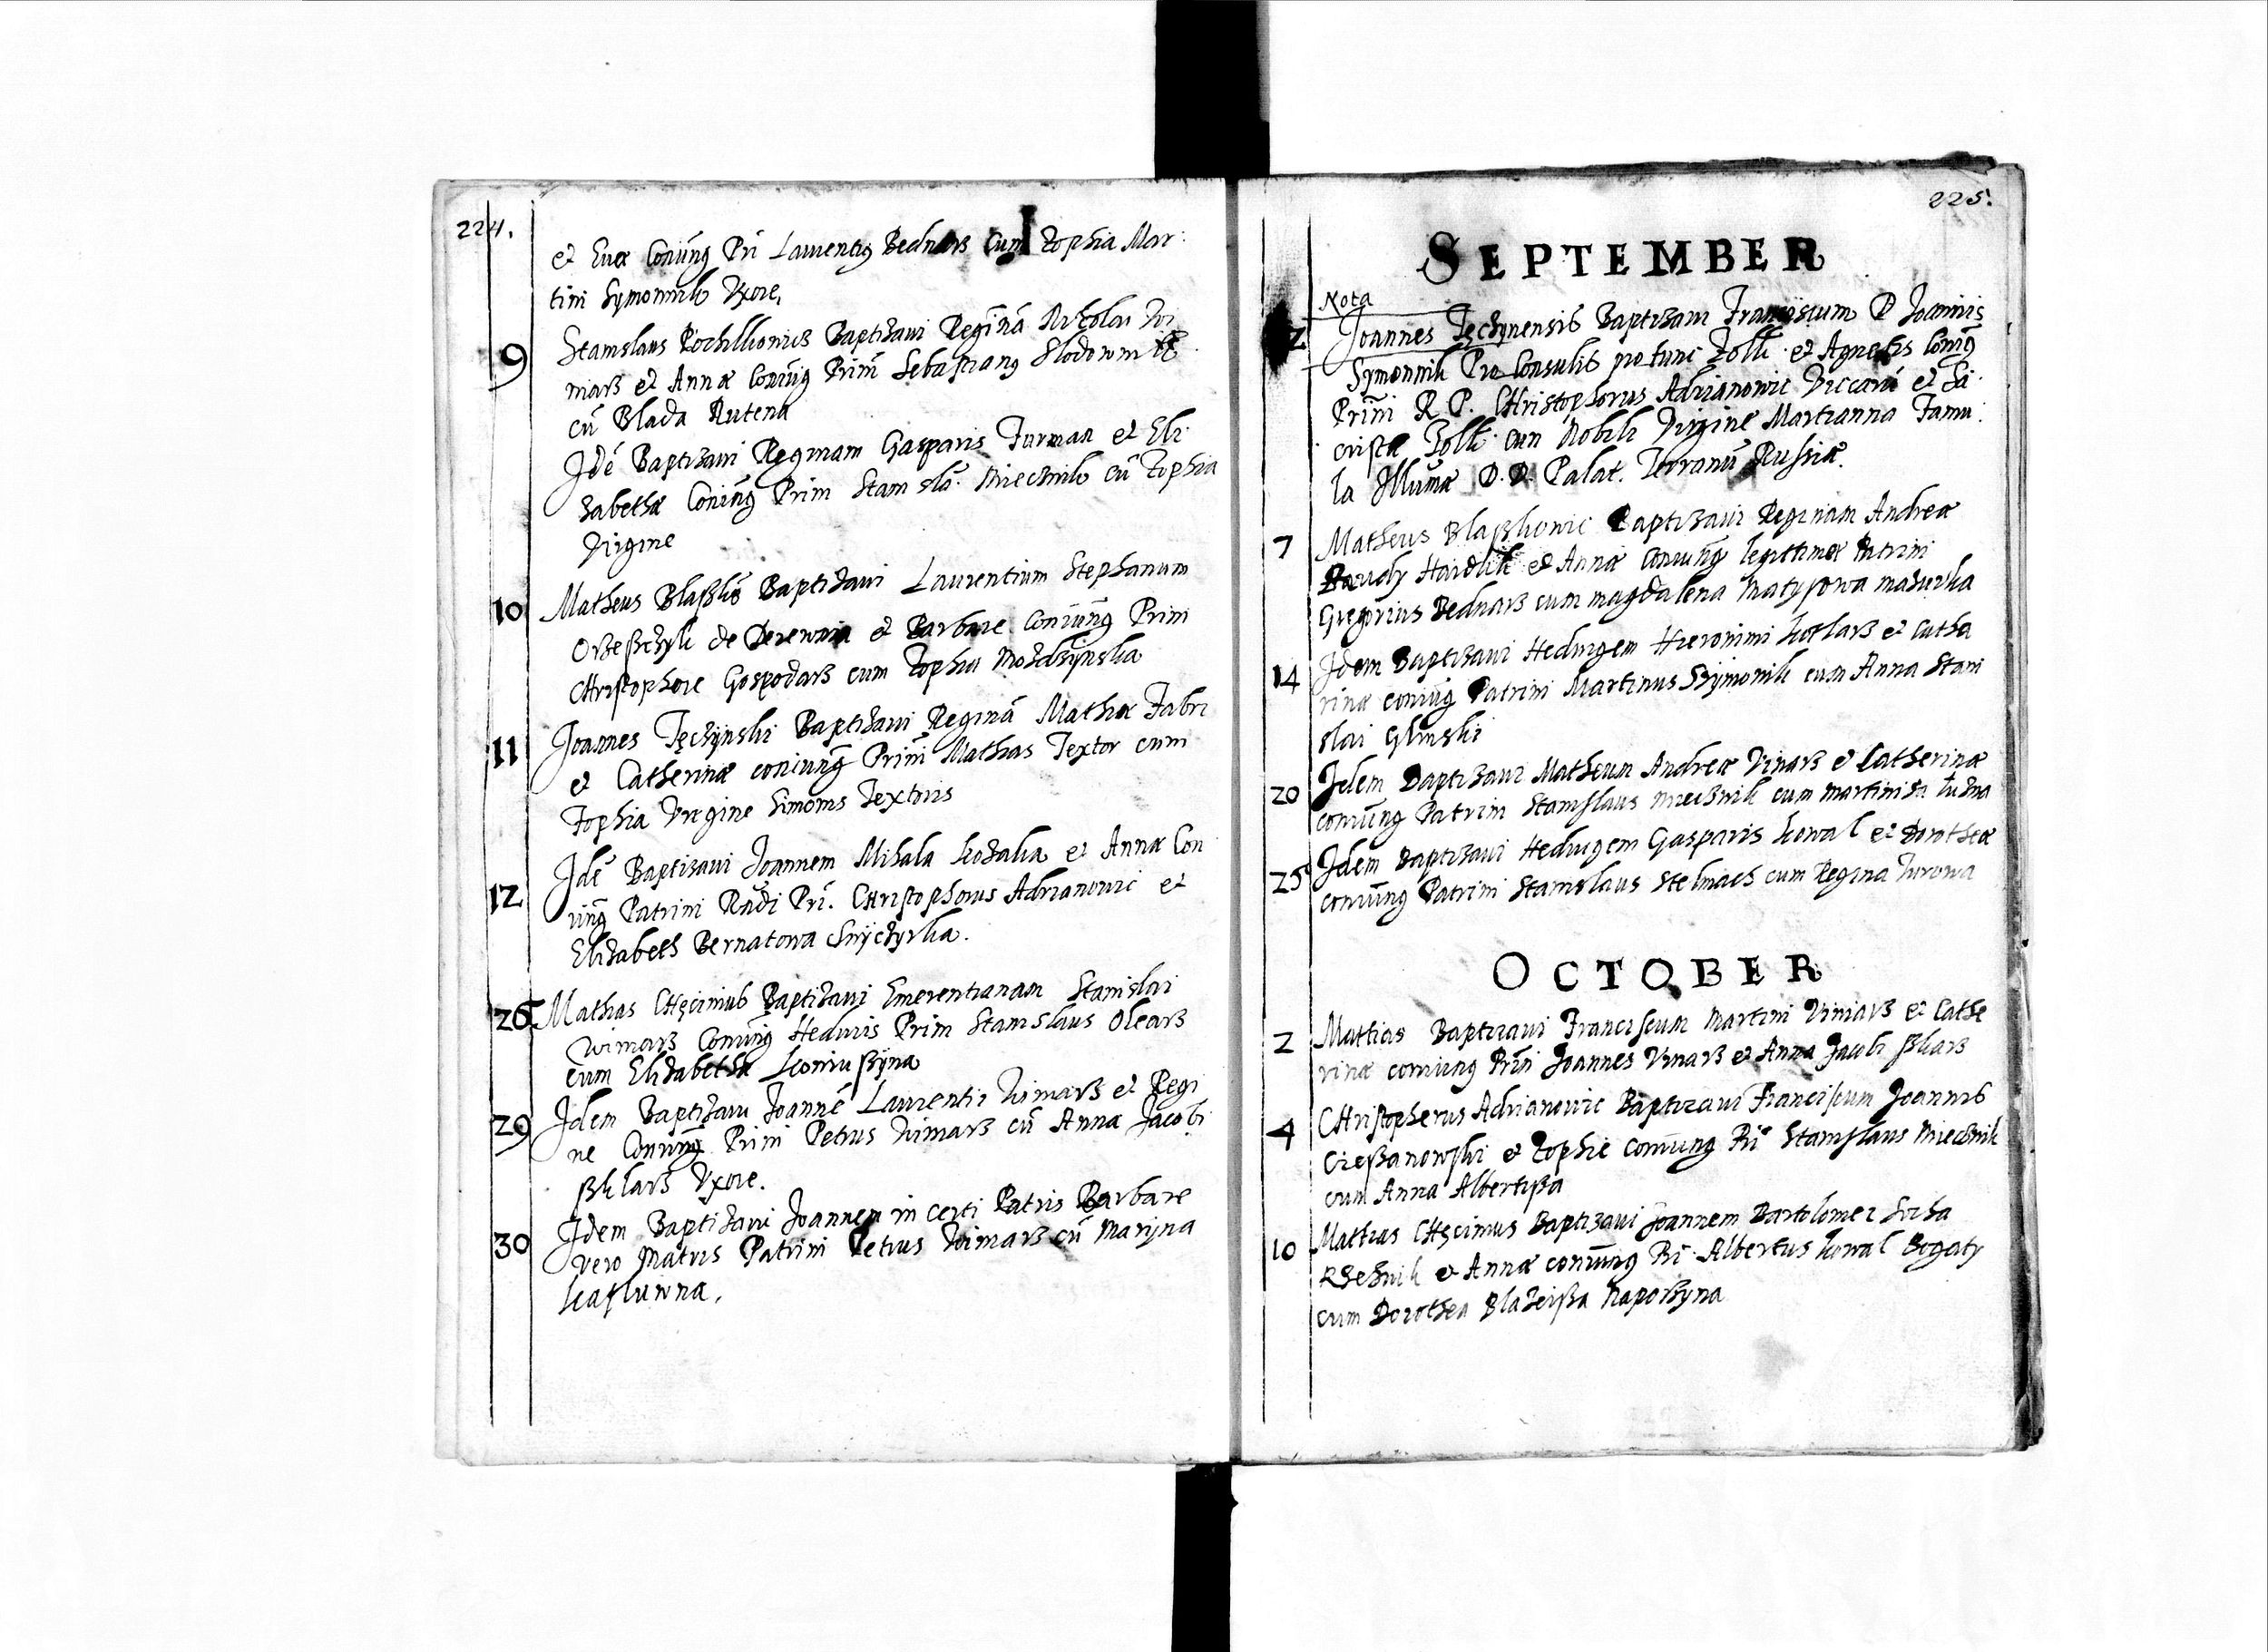 224.
et Euæ Coniung Pri Laurentig Bednarß cum Zophia Mar:
tini Symonnik Vxore,
9 Stanislaus Baptizaui Reginā Nicolai
niarß et Annæ Coniūg Prim Sebastiang
cū Blada Rutena
Idē Baptizaui Reginam Gasparis Furman et Eli
zabethæ Coniūng Prim Stanisla. Miecznik cū Zophia
Virgine
10 Matheus Blaßkō Baptizaui Laurentium Stephanum
de et Barbare Coniūng Prim
Christophore Gospodarß cum Zophia
11 Joannes Tęczÿnski Baptizaui Reginā Mathiæ Fabri
et Catherinæ coniung Prim Mathias Textor cum
Zophia Virgine Simonis Textoris
12 Idē Baptizaui Joannem Mihala Kozaka et Annæ Con
iūng Patrini Pri. Christophorus Adrianowic et
Elizabeth Bernatowa
26 Mathias Chęcimus Baptizaui Emerentianam Stanislai
Winiarß Coniūng Heduis Prim Stanislaus Olearß
cum Elizabetha Koniußÿna
29 Idem Baptizaui Joannē Laurentii Winiarß et Regi
ne Coniūng Prini Petrus Winiarß cū Anna Jacobi
ßklarß Vxore.
30 Idem Baptizaui Joannem in certi Patris Barbare
vero Matris Patrini Petrus Winiarß cū Marÿna
225.
SEPTEMBER
Nota
2 Joannes Tęczynensis Baptizaui Franciscum D Joannis
Symonnik Pro Consulis pro tunc Zolk et Agnetis Coniūg
Prini R P. Christophorus Adrianowic Viccari et Sa
cristæ Zolk cum Nobili Virgine Martianna Famu
la Illumæ D. D. Palat. Terranū Russiæ.
7 Matheus Blaßkowic Baptizaui Reginam Andreæ
et Annæ Coniūng legittimæ Patrini
Gregorius Bednarß cum magdalena Matysowa mazurka
14 Idem Baptizaui Heduigem Hieronimi Kotlarß et Catha
rinæ coniūg Patrini Martinus Sßymonik cum Anna Stani
slai Glinski
20 Idem Baptizaui Matheum Andreæ Vinarß et Catherinæ
coniūng Patrini Stanislaus Miecßnik cum
25 Idem Baptizaui Heduigem Gasparis Kowal et Dorotheæ
coniūng Patrini Stanislaus Stelmach cum Regina Turowa
OCTOBER
2 Mattias Baptizaui Franciscum Martini Viniarß et Cathe
rinæ coniung Prini Joannes Vinarß et Anna Jacobi ßklarß
4 Christopherus Adrianowic Baptizaui Franciscum Joannis
Cießanowski et Zophie coniūng Pri Stanislaus Miecßnik
cum Anna Albertißa
10 Mathias Chęcimus Baptizaui Joannem Bartolomei Socha
et Annæ coniūng Pri Albertus Kowal Bogaty
cum Dorothea Blazeißa